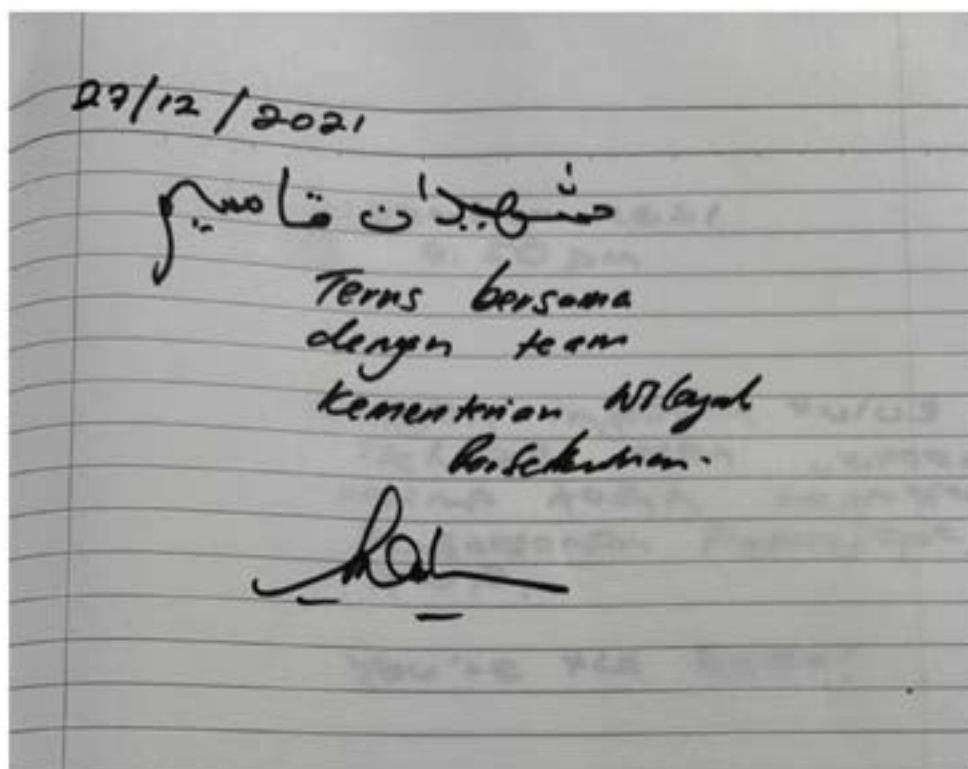 27/12/2021
شهيدان قاسيم
Terus bersama
dengan team
Kementerian Wilayah
Persekutuan.